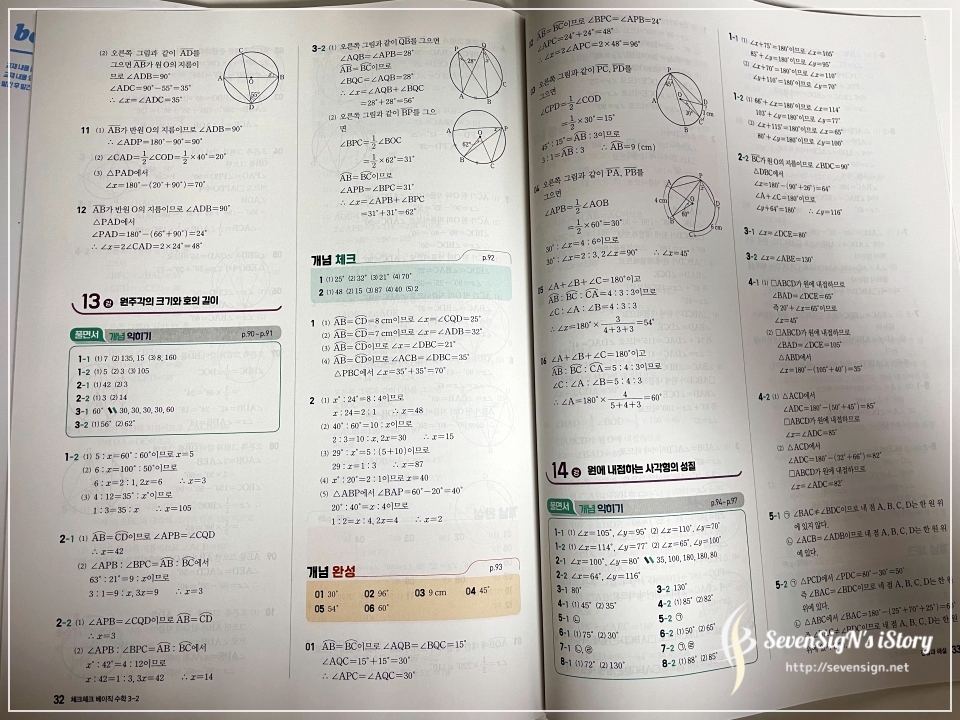 (2) 오른쪽 그림과 같이 AD를
그으면 AB가 원 O의 지름이
므로 ∠ADB=90°
∠ADC=90°-55°=35°
∴ ∠x=∠ADC=35°
11 (1) AB가 반원 O의 지름이므로 ∠ADB=90°
∴ ∠ADP=180°-90°=90°
(2) ∠CAD=1/2∠COD=1/2×40°=20°
(3) △PAD에서
∠x=180°-(20°+90°)=70°
12 AB가 반원 O의 지름이므로 ∠ADB=90°
△PAD에서
∠PAD=180°-(66°+90°)=24°
∴ ∠x=2∠CAD=2×24°=48°
13강 원주각의 크기와 호의 길이
풀면서 개념 익히기 p.90~p.91
1-1 (1) 7 (2) 135, 15 (3) 8, 160
1-2 (1) 5 (2) 3 (3) 105
2-1 (1) 42 (2) 3
2-2 (1) 3 (2) 14
3-1 60° 30, 30, 30, 30, 60
3-2 (1) 56° (2) 62°
1-2 (1) 5 : x=60° : 60°이므로 x=5
(2) 6 : x=100° : 50°이므로
6 : x=2 : 1, 2x=6 ∴ x=3
(3) 4 : 12=35° : x°이므로
1 : 3=35 : x ∴ x=105
2-1 (1) AB=CD이므로 ∠APB=∠CQD
∴ x=42
(2) ∠APB : ∠BPC=AB : BC에서
63° : 21°=9 : x이므로
3 : 1=9 : x, 3x=9 ∴ x=3
2-2 (1) ∠APB=∠CQD이므로 AB=CD
∴ x=3
(2) ∠APB : ∠BPC=AB : BC에서
x° : 42°=4 : 12이므로
x : 42=1 : 3, 3x=42 ∴ x=14
32 체크체크 베이직 수학 3-2
3-2 (1) 오른쪽 그림과 같이 QB를 그으면
∠AQB=∠APB=28°
AB=BC이므로
∠BQC=∠AQB=28°
∴ ∠x=∠AQB+∠BQC
=28°+28°=56°
(2) 오른쪽 그림과 같이 BP를 그으
면
∠BPC=1/2∠BOC
=1/2×62°=31°
AB=BC이므로
∠APB=∠BPC=31°
∴ ∠x=∠APB+∠BPC
=31°+31°=62°
개념 체크 p.92
1 (1) 25° (2) 32° (3) 21° (4) 70°
2 (1) 48 (2) 15 (3) 87 (4) 40 (5) 2
1 (1) AB=CD=8 cm이므로 ∠x=∠CQD=25°
(2) AB=CD=7 cm이므로 ∠x=∠ADB=32°
(3) AB=CD이므로 ∠x=∠DBC=21°
(4) AB=CD이므로 ∠ACB=∠DBC=35°
△PBC에서 ∠x=35°+35°=70°
2 (1) x° : 24°=8 : 4이므로
x : 24=2 : 1 ∴ x=48
(2) 40° : 60°=10 : x이므로
2 : 3=10 : x, 2x=30 ∴ x=15
(3) 29° : x°=5 : (5+10)이므로
29 : x=1 : 3 ∴ x=87
(4) x° : 20°=2 : 1이므로 x=40
(5) △ABP에서 ∠BAP=60°-20°=40°
20° : 40°=x : 4이므로
1 : 2=x : 4, 2x=4 ∴ x=2
개념 완성 p.93
01 30° 02 96° 03 9 cm 04 45°
05 54° 06 60°
01 AB=BC이므로 ∠AQB=∠BQC=15°
∠AQC=15°+15°=30°
∴ ∠x=∠APC=∠AQC=30°
AB=BC이므로 ∠BPC=∠APB=24°
∠APC=24°+24°=48°
∴ ∠x=2∠APC=2×48°=96°
오른쪽 그림과 같이 PC, PD를
그으면
∠CPD=1/2∠COD
=1/2×30°=15°
45° : 15°=AB : 3이므로
3 : 1=AB : 3 ∴ AB=9 (cm)
04 오른쪽 그림과 같이 PA, PB를
그으면
∠APB=1/2∠AOB
=1/2×60°=30°
30° : ∠x=4 : 6이므로
30° : ∠x=2 : 3, 2∠x=90° ∴ ∠x=45°
05 ∠A+∠B+∠C=180°이고
AB : BC : CA=4 : 3 : 3이므로
∠C : ∠A : ∠B=4 : 3 : 3
∴ ∠x=180°×3/(4+3+3)=54°
06 ∠A+∠B+∠C=180°이고
AB : BC : CA=5 : 4 : 3이므로
∠C : ∠A : ∠B=5 : 4 : 3
∴ ∠A=180°×4/(5+4+3)=60°
14강 원에 내접하는 사각형의 성질
풀면서 개념 익히기 p.94~p.97
1-1 (1) ∠x=105°, ∠y=95° (2) ∠x=110°, ∠y=70°
1-2 (1) ∠x=114°, ∠y=77° (2) ∠x=65°, ∠y=100°
2-1 ∠x=100°, ∠y=80° 35, 100, 180, 180, 80
2-2 ∠x=64°, ∠y=116°
3-1 80° 3-2 130°
4-1 (1) 45° (2) 35° 4-2 (1) 85° (2) 82°
5-1 ㉡ 5-2 ㉠
6-1 (1) 75° (2) 30° 6-2 (1) 50° (2) 65°
8-1 (1) 72° (2) 130° 8-2 (1) 88° (2) 85°
1-1 (1) ∠x+75°=180°이므로 ∠x=105°
85°+∠y=180°이므로 ∠y=95°
(2) ∠x+70°=180°이므로 ∠x=110°
∠y+110°=180°이므로 ∠y=70°
1-2 (1) 66°+∠x=180°이므로 ∠x=114°
103°+∠y=180°이므로 ∠y=77°
(2) ∠x+115°=180°이므로 ∠x=65°
80°+∠y=180°이므로 ∠y=100°
2-2 BC가 원 O의 지름이므로 ∠BDC=90°
△DBC에서
∠x=180°-(90°+26°)=64°
∠A+∠C=180°이므로
∠y+64°=180° ∴ ∠y=116°
3-1 ∠x=∠DCE=80°
3-2 ∠x=∠ABE=130°
4-1 (1) □ABCD가 원에 내접하므로
∠BAD=∠DCE=65°
즉 20°+∠x=65°이므로
∠x=45°
(2) □ABCD가 원에 내접하므로
∠BAD=∠DCE=105°
△ABD에서
∠x=180°-(105°+40°)=35°
4-2 (1) △ACD에서
∠ADC=180°-(50°+45°)=85°
□ABCD가 원에 내접하므로
∠x=∠ADC=85°
(2) △ACD에서
∠ADC=180°-(32°+66°)=82°
□ABCD가 원에 내접하므로
∠x=∠ADC=82°
5-1 ㉠ ∠BAC≠∠BDC이므로 네 점 A, B, C, D는 한 원 위
에 있지 않다.
㉡ ∠ACB=∠ADB이므로 네 점 A, B, C, D는 한 원 위
에 있다.
5-2 ㉠ △PCD에서 ∠PDC=80°-30°=50°
즉 ∠BAC=∠BDC이므로 네 점 A, B, C, D는 한 원
위에 있다.
SevenSigN's iStory
http://sevensign.net
33